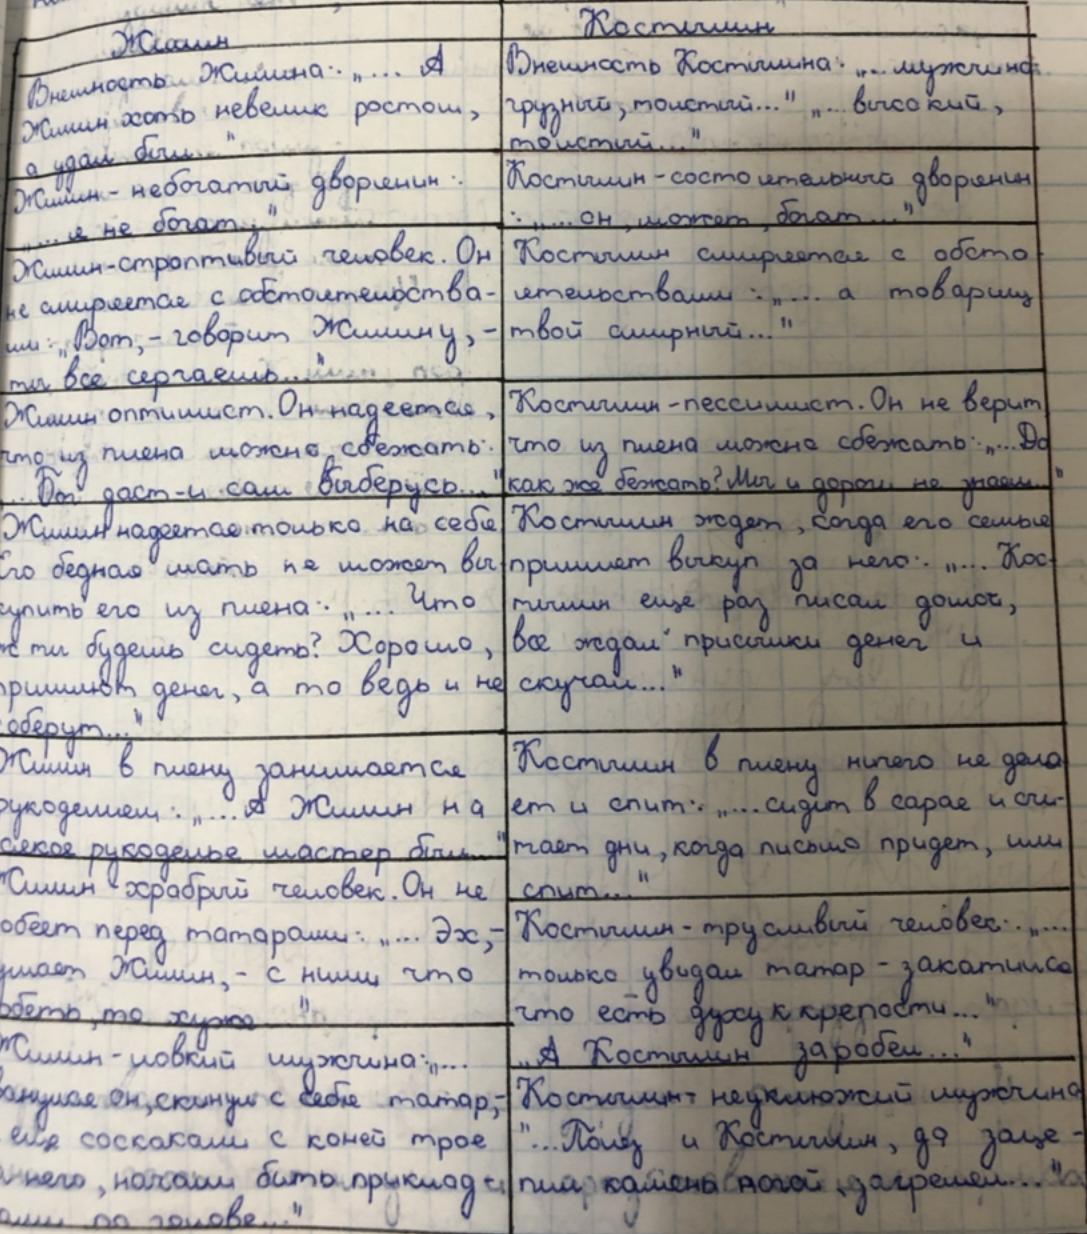 Жилин
Внешность Жилина: „... А
Жилин хоть невелик ростом,
а удал был..."
Жилин - небогатый дворянин:
„... я не богат..."
Жилин-строптивый человек. Он
не смиряется с обстоятельства-
ми: „Вот, - говорит Жилину, -
ты все серчаешь..."
Жилин оптимист. Он надеется,
что из плена можно сбежать:
... Бог даст-и сам выберусь..."
Жилин надеется только на себя
Его бедная мать не может вы
купить его из плена: „... Что
ж ты будешь сидеть? Хорошо,
пришлют денег, а то ведь и не
соберут..."
Жилин в плену занимается
рукоделием: „... А Жилин на
всякое рукоделье мастер был..."
Жилин храбрый человек. Он не
робеет перед татарами: „... Эх, -
думает Жилин, - с ними что
робеть, то хуже "
Жилин-ловкий мужчина: „...
он, скинул с себя татар, -
еще соскакали с коней трое
на него, начали бить приклад
ами по голове..."
Костылин
Внешность Костылина: „... мужчина
грузный, толстый..." „... высокий,
толстый..."
Костылин-состоятельный дворянин
: „... он, может, богат..."
Костылин смиряется с обсто
ятельствами: „... а товарищ
твой смирный..."
Костылин-пессимист. Он не верит
что из плена можно сбежать: „... Да
как же бежать? Мы и дороги не знаем..."
Костылин ждет, когда его семья
пришлет выкуп за него: „... Кос-
тылин еще раз писал домой,
все ждал присылки денег и
скучал..."
Костылин в плену ничего не дела
ет и спит: „... сидит в сарае и счи-
тает дни, когда письмо придет, или
спит..."
Костылин-трусливый человек: „...
только увидал татар - закатился
что есть духу к крепости..."
„А Костылин заробел..."
Костылин- неуклюжий мужчина
"... Полез и Костылин, да заце-
пил камень ногой, загремел..."